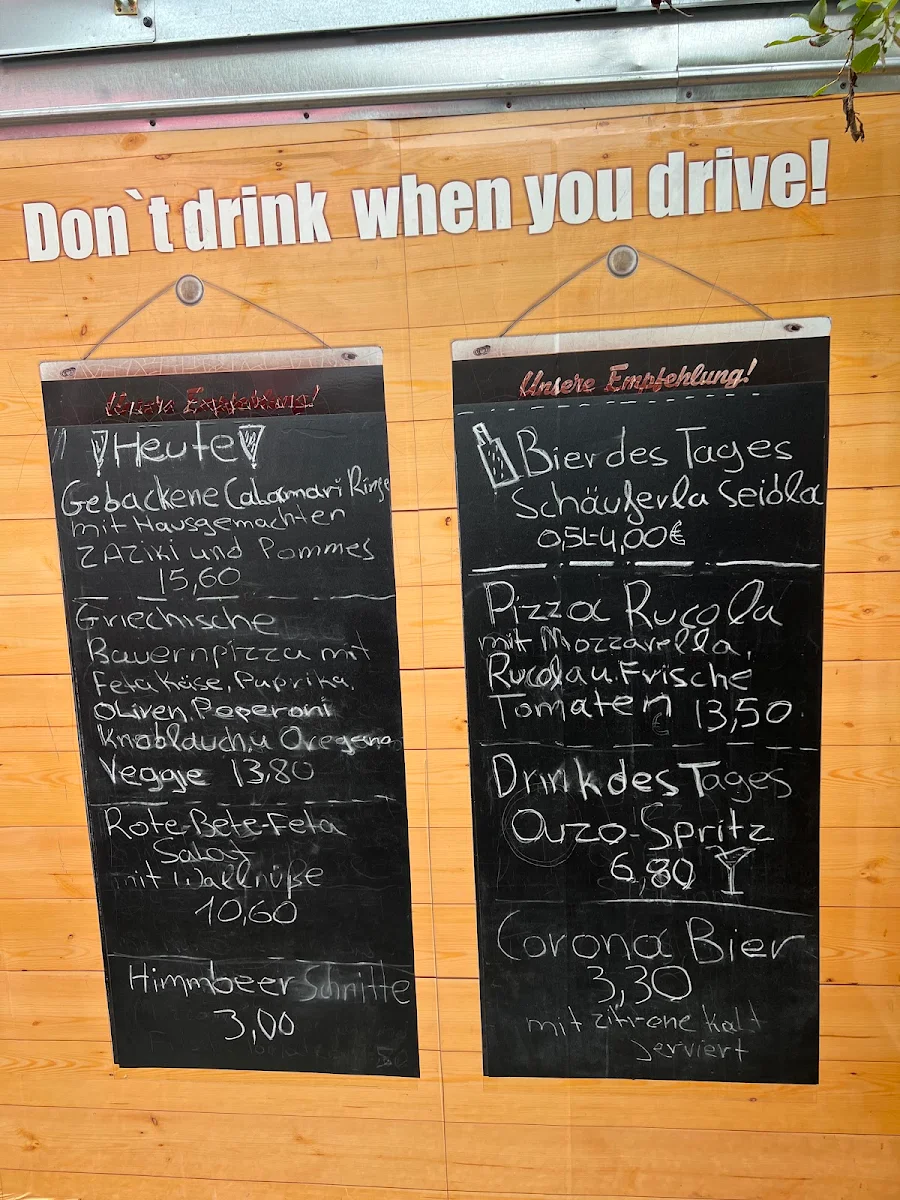 Don`t drink when you drive!
Unsere Empfehlung!
Heute
Gebackene Calamari Ringe
mit Hausgemachten
ZAZiki und Pommes
15,60
Griechische
Bauernpizza mit
Feta Käse, Paprika,
Oliven, Peperoni
Knoblauch, u Oregano
Veggie 13,80
Rote-Bete-Feta
Salat
mit Wallnüße
10,60
Himmbeer Schnitte
3,00
Unsere Empfehlung!
Bier des Tages
Schäuferla Seidla
0,5L-4,00€
Pizza Rucola
mit Mozzarella,
Rucola u. Frische
Tomaten 13,50
Drink des Tages
Ouzo-Spritz
6,80
Corona Bier
3,30
mit zitrone kalt
serviert